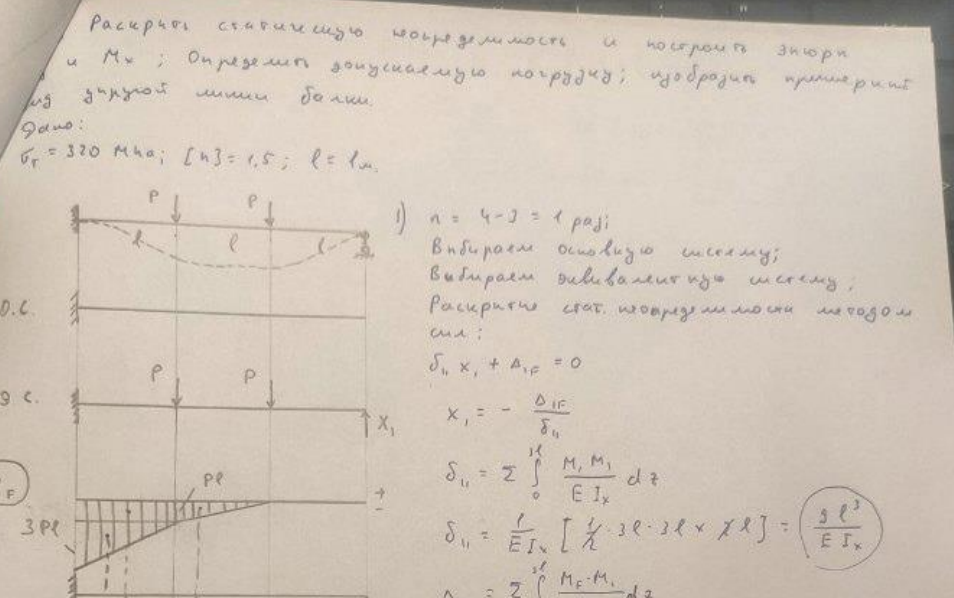 Раскрыть статическую неопределимость и построить эпюры
и Mx ; Определить допускаемую нагрузку; изобразить примерный
вид упругой линии балки.
Дано:
σт = 320 Мпа; [n] = 1,5; l = 1м.
P P
l l l
1) n = 4-3 = 1 раз;
Выбираем основную систему;
Выбираем эквивалентную систему;
Раскрытие стат. неопределимости методом
сил:
О.С.
δ11 x1 + Δ1F = 0
P P
Э С.
X1
x1 = - Δ1F / δ11
δ11 = Σ ∫0^3l M1 M1 / E Ix dz
Pl
+
-
F
3Pl
δ11 = 1 / E Ix [ 1/2 · 3l · 3l × 2l ] = 9 l^3 / E Ix
= Σ ∫^3l MF · M1 dz